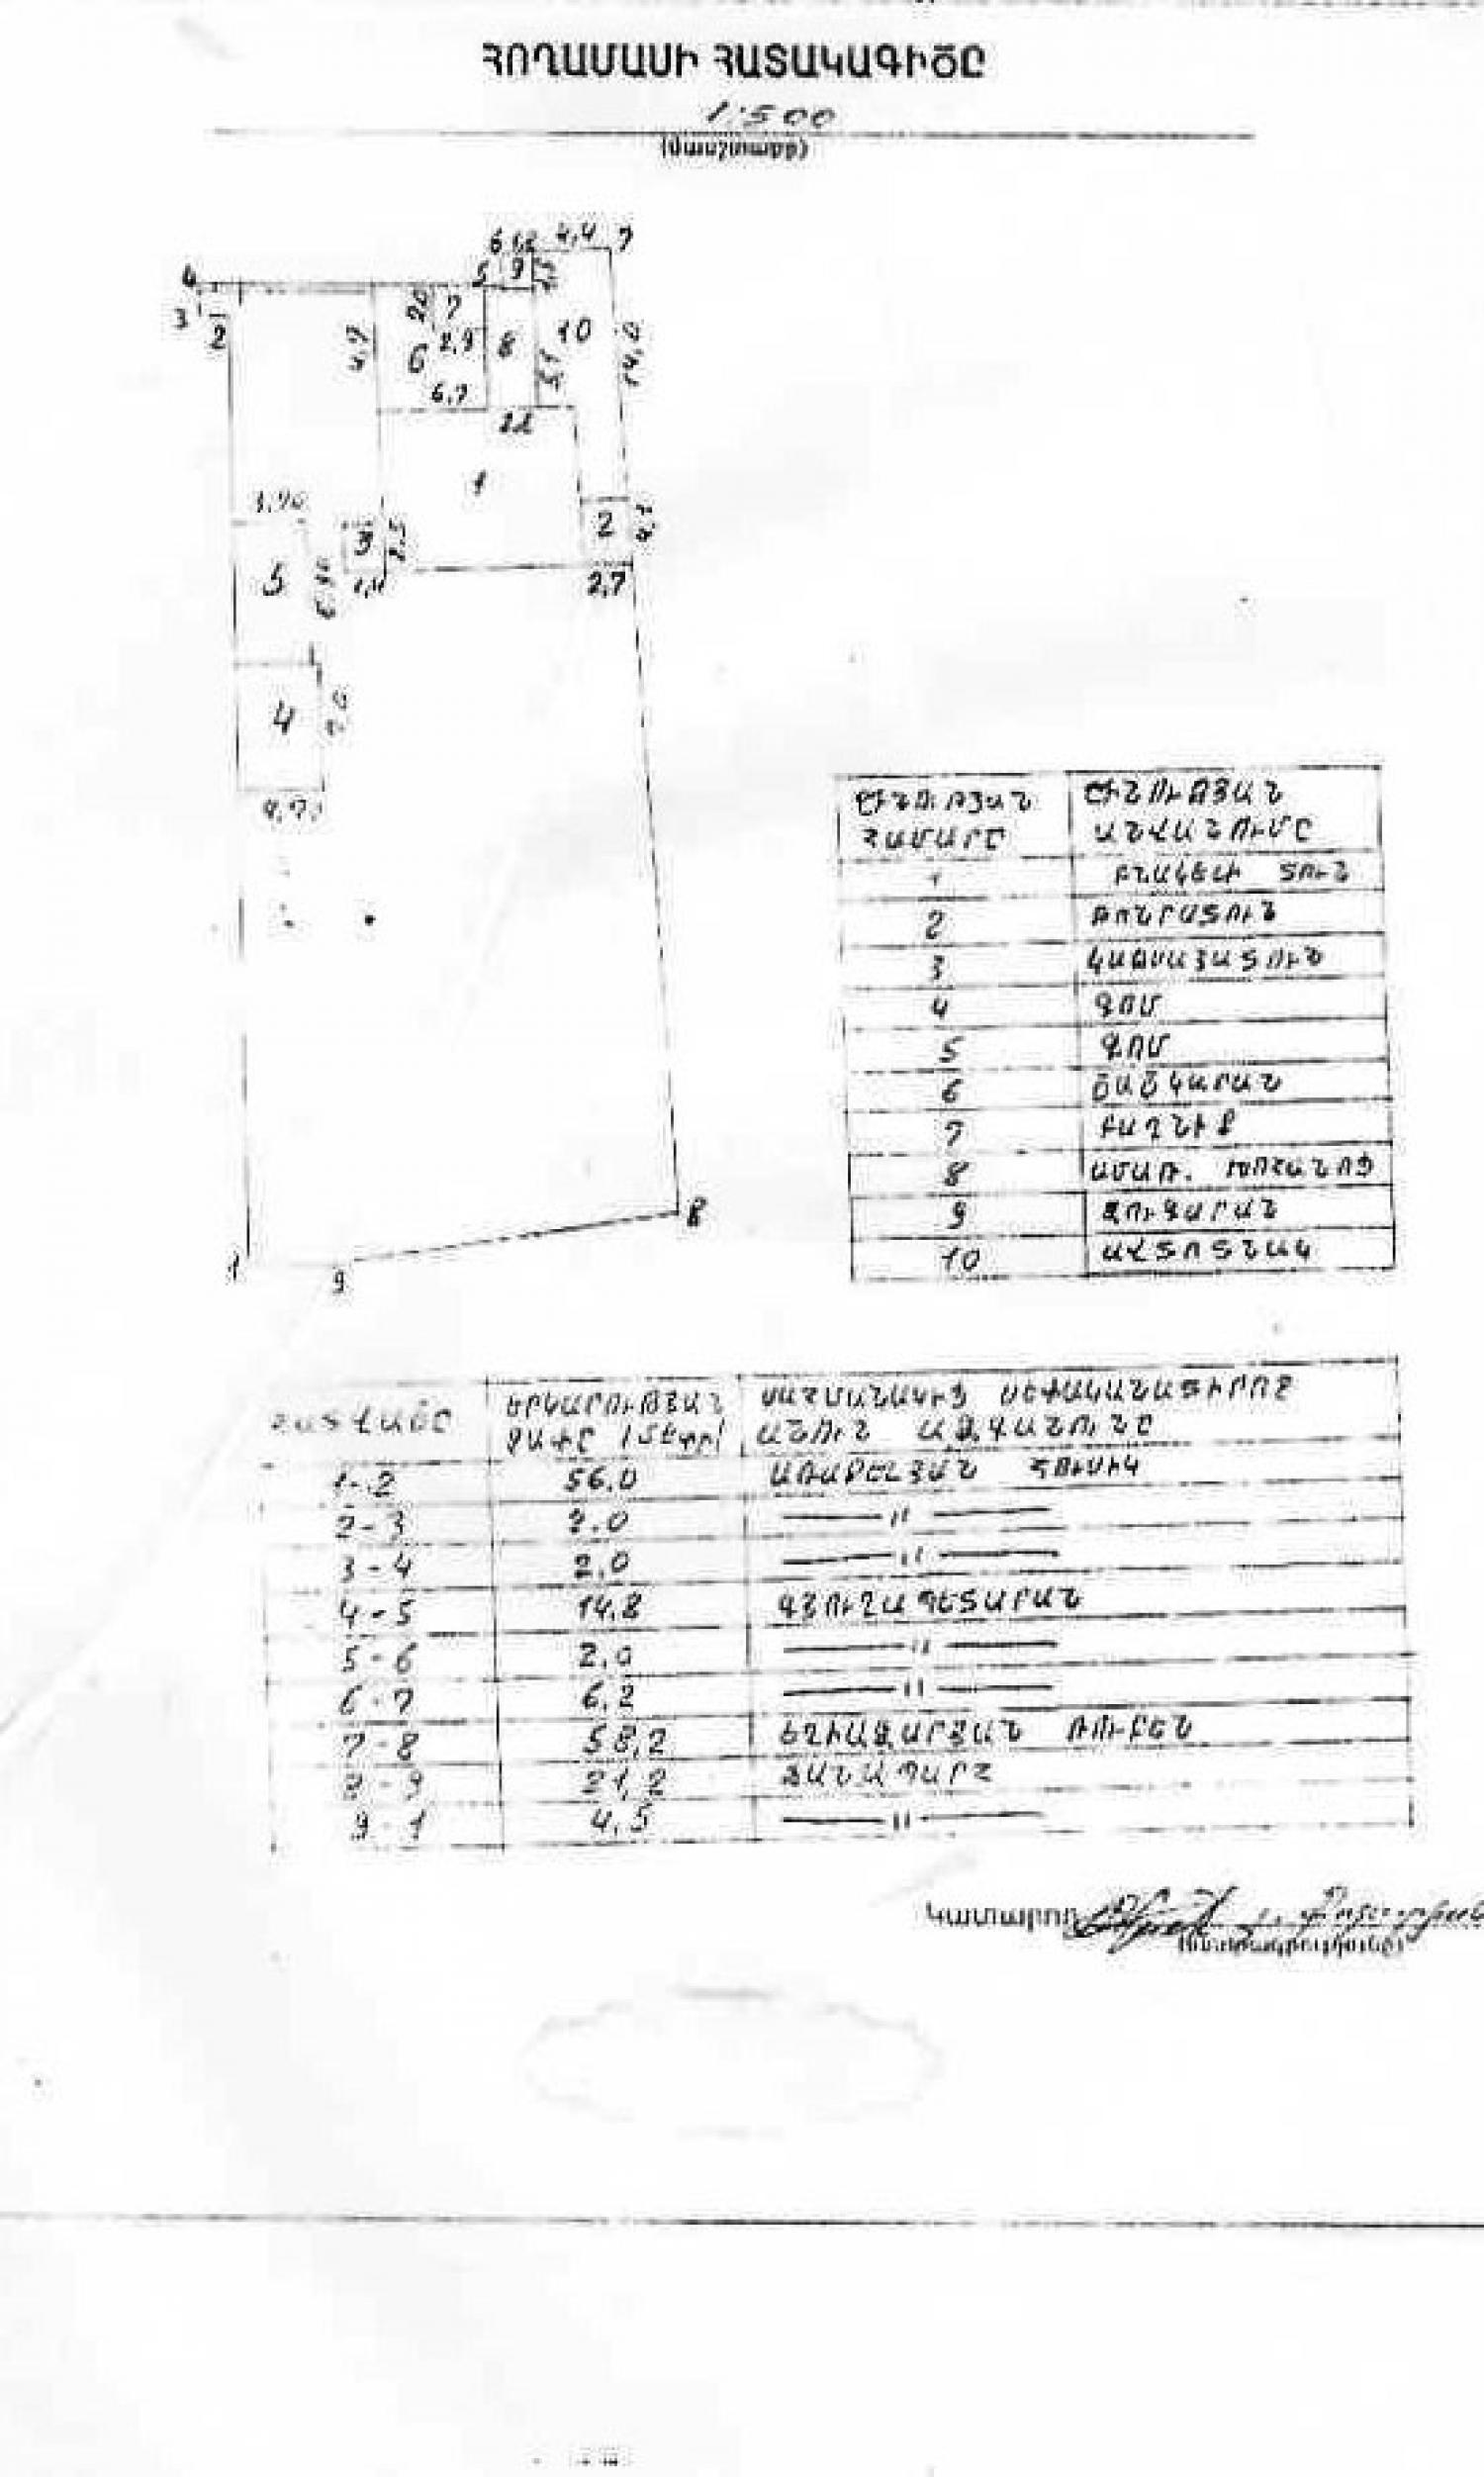 ՀՈՂԱՄԱՍԻ ՀԱՏԱԿԱԳԻԾԸ
1:500
(մասշտաբը)
6 1,2 4,4 7
4 5 9
3 2
2,0 7
4,7 6 2,9 8 10 14,0
6,7 5,1
2,2
1
3,90
3 2,5 2 4,2
5 2,7
4
4,7
8
1 9
ՇԻՆՈՒԹՅԱՆ ՀԱՄԱՐԸ ՇԻՆՈՒԹՅԱՆ ԱՆՎԱՆՈՒՄԸ
1 ԲՆԱԿԵԼԻ ՏՈՒՆ
2 ԹՈՆՐԱՏՈՒՆ
3
4 ԳՈՄ
5 ԳՈՄ
6 ԾԱԾԿԱՐԱՆ
7 ԲԱՂՆԻՔ
8 ԱՄԱՌ. ԽՈՀԱՆՈՑ
9 ԶՈՒԳԱՐԱՆ
10 ԱՎՏՈՏՆԱԿ
ՀԱՏՎԱԾԸ ԵՐԿԱՐՈՒԹՅԱՆ ՉԱՓԸ /ՄԵՏՐ/ ՍԱՀՄԱՆԱԿԻՑ ՍԵՓԱԿԱՆԱՏԻՐՈՋ ԱՆՈՒՆ ԱԶԳԱՆՈՒՆԸ
1-2 56,0 ԱՌԱՔԵԼՅԱՆ ՀՈՒՍԻԿ
2-3 2.0 —〃—
3-4 2,0 —〃—
4-5 14,8 ԳՅՈՒՂԱՊԵՏԱՐԱՆ
5-6 2,0 —〃—
6-7 6,2 —〃—
7-8 58,2 ԵՂԻԱԶԱՐՅԱՆ ՌՈՒԲԵՆ
8-9 21,2 ՃԱՆԱՊԱՐՀ
9-1 4,5 —〃—
Կատարող
(ստորագրությունը)